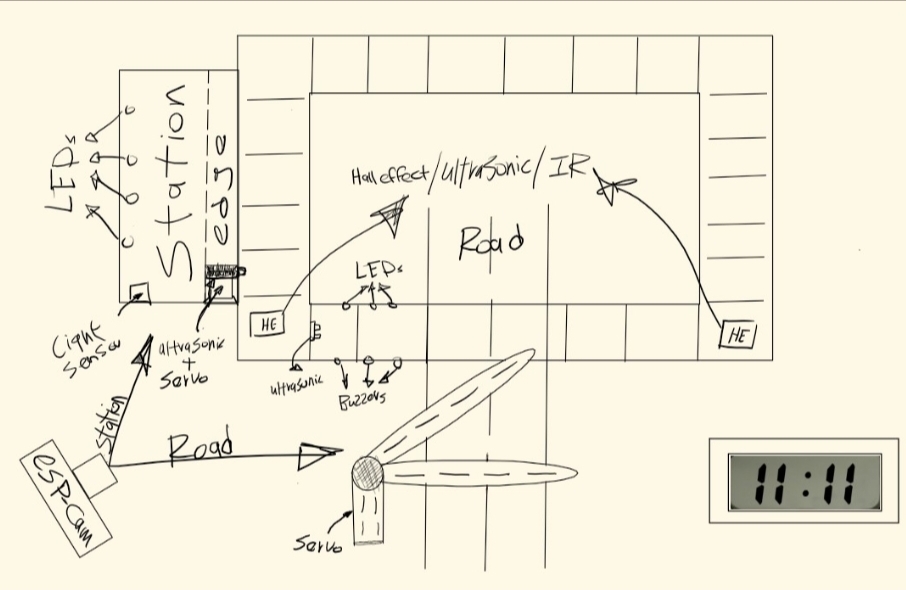 LEDs
Station
edge
Hall effect/ultrasonic/IR
Road
LEDs
HE
HE
Light
Sensor
ultrasonic
+
Servo
ultrasonic
Buzzers
Station
Road
ESP-Cam
Servo
11:11